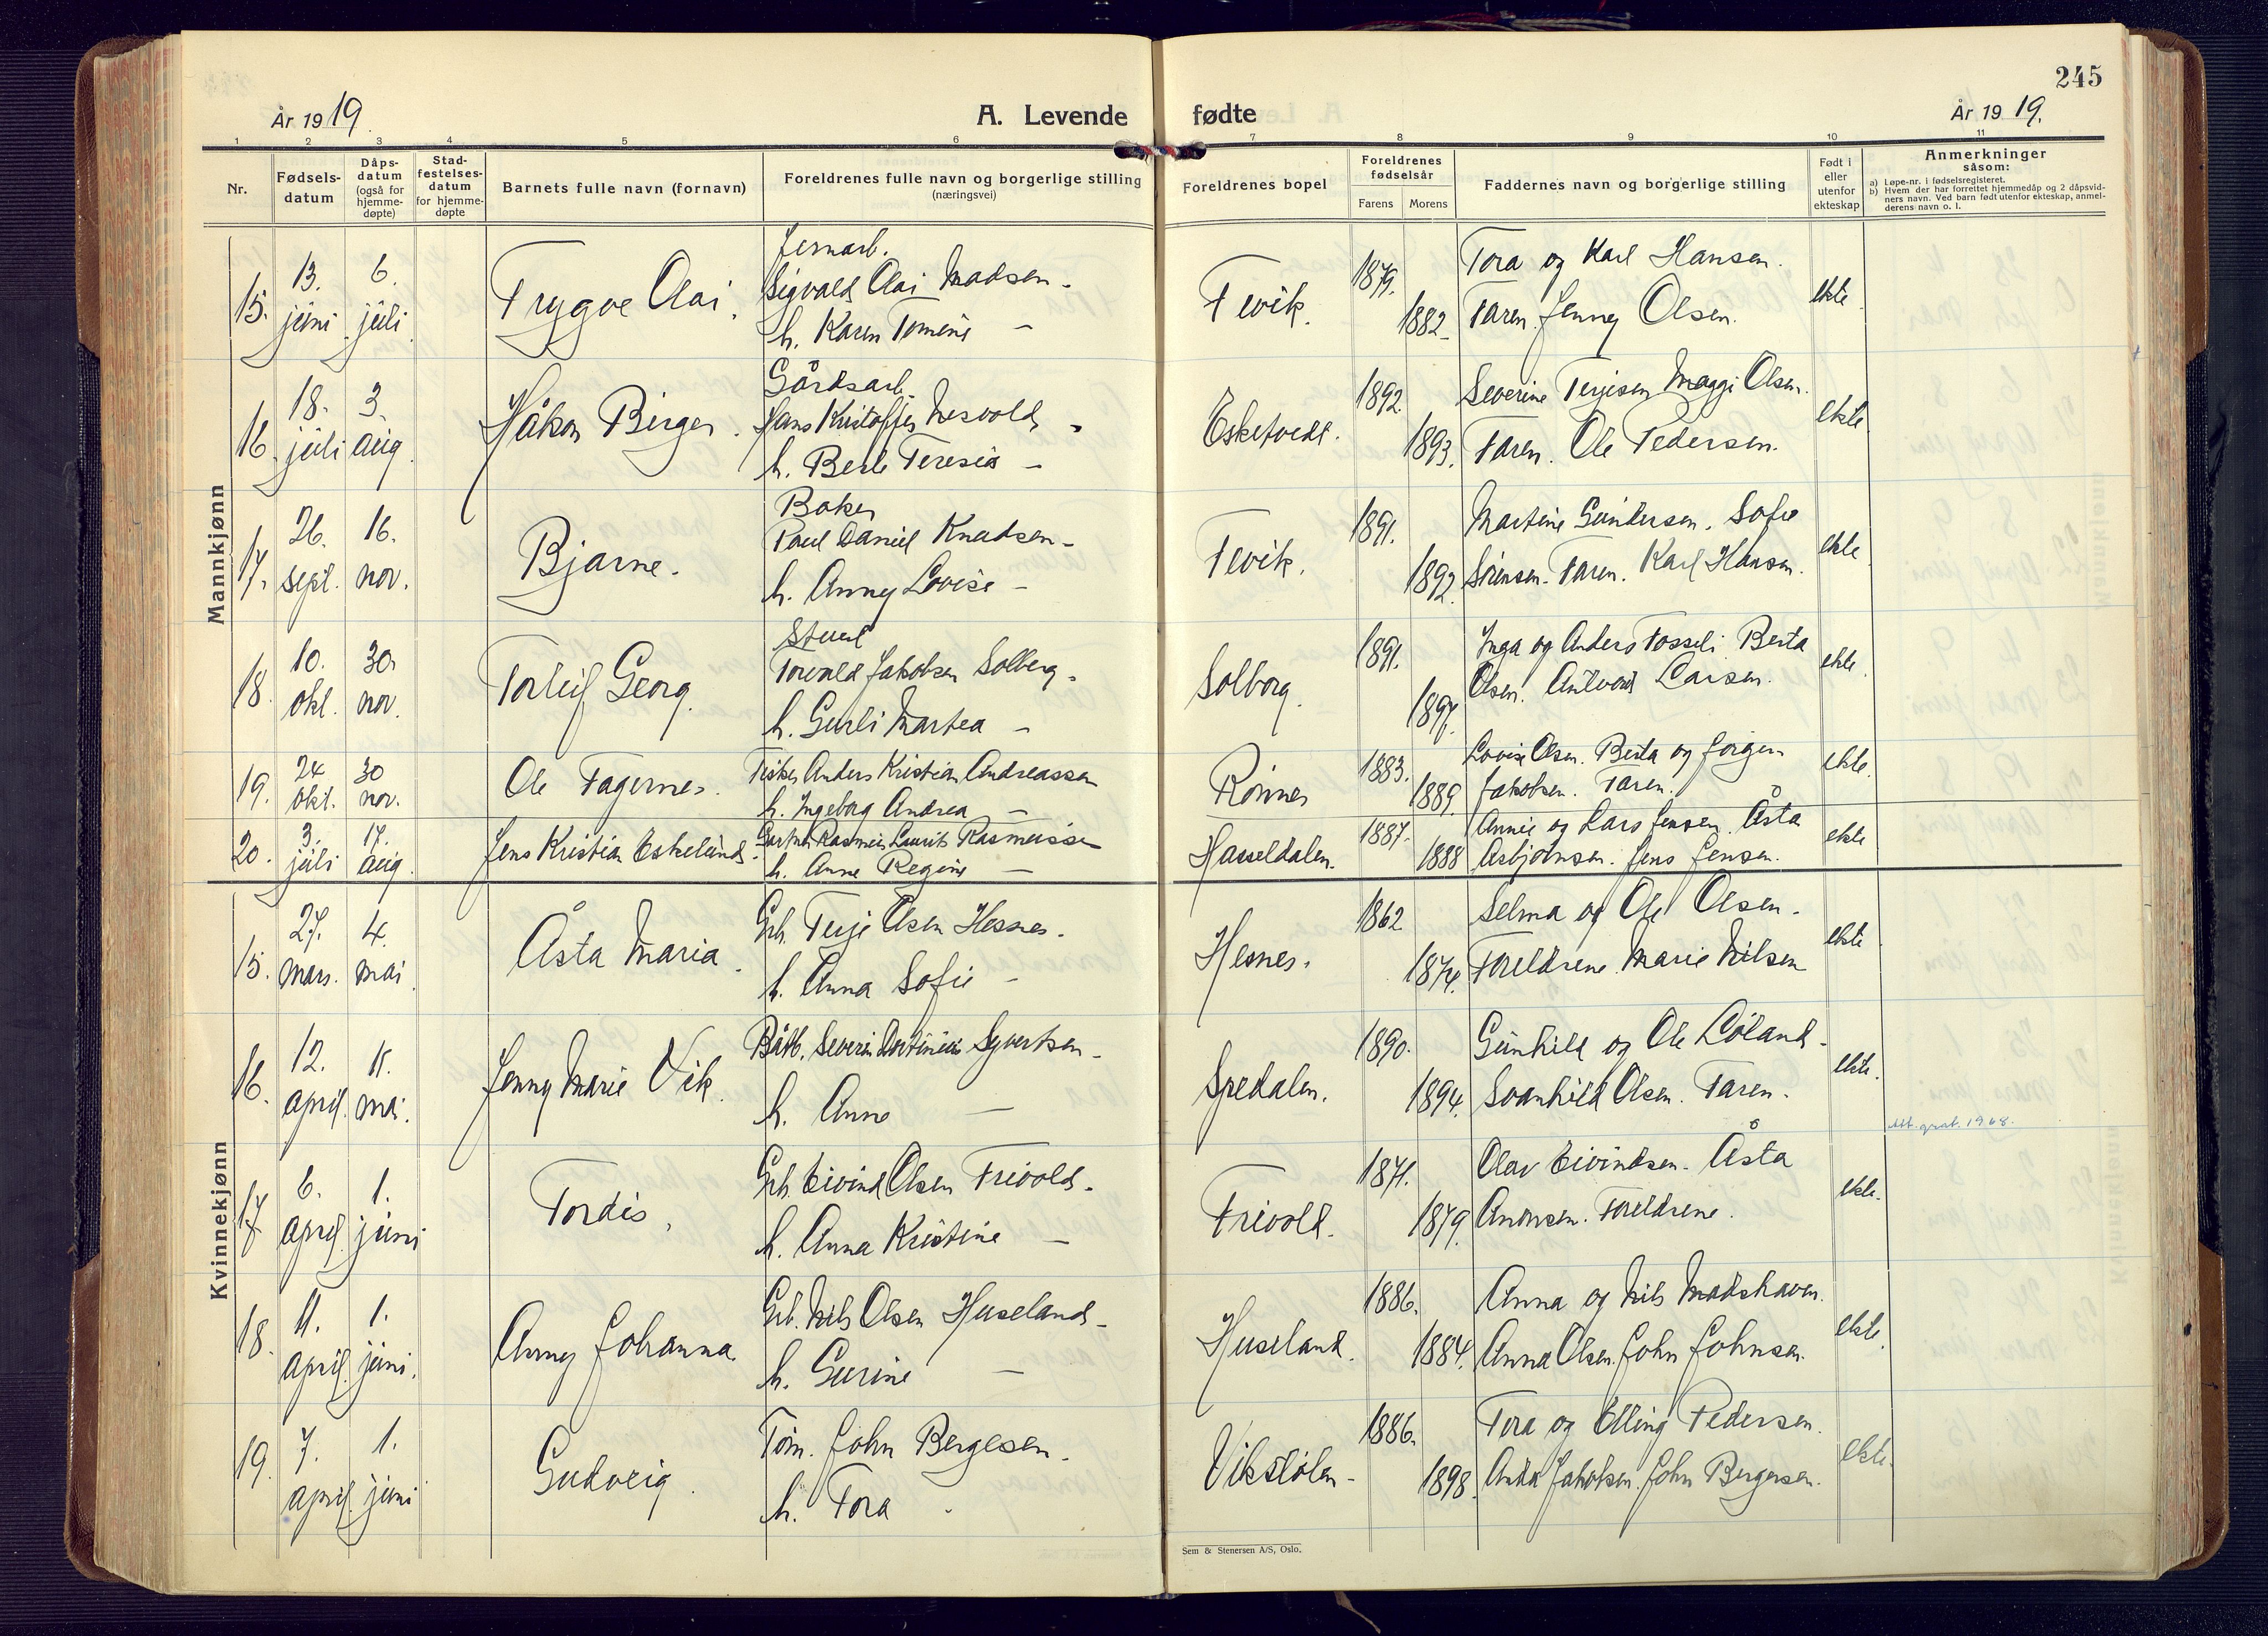 245
År 1919.
A. Levende fødte
År 1919.
1 2 3 4 5 6 7 8 9 10 11
Nr.
Fødsels-
datum
Dåps-
datum
(også for
hjemme-
døpte)
Stad-
festelses-
datum
for hjemme-
døpte
Barnets fulle navn (fornavn)
Foreldrenes fulle navn og borgerlige stilling
(næringsvei)
Foreldrenes bopel
Foreldrenes
fødselsår
Farens Morens
Faddernes navn og borgerlige stilling
Født i
eller
utenfor
ekteskap
Anmerkninger
såsom:
a) Løpe-nr. i fødselsregisteret.
b) Hvem der har forrettet hjemmedåp og 2 dåpsvid-
ners navn. Ved barn født utenfor ekteskap, anmel-
derens navn o. l.
Mannkjønn
15. 13. juni 6. juli Trygve Olai.
Jernarb.
Sigvald Olai Madsen -
h. Karen Tomine -
Fevik. 1879. 1882
Tora og Karl Hansen.
Faren. Jenny Olsen.
ekte
16. 18. juli 3. aug. Håkon Birger.
Gårdsarb.
Hans Kristoffer Nesvold -
h. Berte Teresia -
Eskefvedt. 1892. 1893.
Severine Terjesen, Maggi Olsen.
Faren. Ole Pedersen.
ekte
17. 26. sept. 16. nov. Bjarne.
Baker
Paul Daniel Knudsen -
h. Anny Lovise -
Fevik. 1891. 1892.
Martine Gundersen. Sofie
Sørensen. Faren. Karl Hansen.
ekte
18. 10. okt. 30. nov. Torleif Georg.
Stuert
Torvald Jakobsen Solberg -
h. Gurli Martea -
Solborg. 1891. 1897.
Inga og Anders Fosseli Berta
Olsen. Larsen.
ekte.
19. 24. okt. 30 nov. Ole Fagernes.
Fisker Anders Kristian Andreassen
h. Ingeborg Andrea -
Rønnes 1883. 1889.
Lovise Olsen. Berta og Jørgen
Jakobsen. Faren.
ekte.
20. 3. juli 17. aug. Jens Kristian Eskelund.
Gartner Rasmus Laurits Rasmussen
h. Anne Regine -
Hasseldalen. 1887. 1888
Annie og Lars Jensen. Åsta
Asbjørnsen. Jens Jensen.
ekte
Kvinnekjønn
15. 27. mars. 4. mai Åsta Maria.
Grb. Terje Olsen Hesnes.
h. Anna Sofie -
Hesnes. 1862 1874.
Selma og Ole Olsen.
Foreldrene. Marie Nilsen
ekte
16. 12. april. 11. mai. Jenny Marie Vik.
Båtb. Severin Martinius Syvertsen -
h. Anne -
Spedalen. 1890. 1894.
Gunhild og Ole Løland.
Svanhild Olsen. Faren.
ekte.
Att. grat. 1968.
17 6. april. 1. juni Tordis.
Grb. Eivind Olsen Frivold -
h. Anna Kristine -
Frivold. 1871. 1879.
Olav Eivindsen. Åsta
Aronsen. Foreldrene.
ekte.
18. 11. april. 1. juni. Anny Johanna.
Grb. Nils Olsen Huseland -
h. Gurine -
Huseland. 1886. 1884.
Anna og Nils Madshaven.
Anna Olsen. John Johnsen.
ekte.
19. 7. april. 1. juni Gudveig.
Tøm. John Bergesen.
h. Tora -
Vikstølen - 1886. 1898.
Tora og Elling Pedersen.
Anna Jakobsen. John Bergesen.
ekte.
Sem & Stenersen A/S, Oslo.